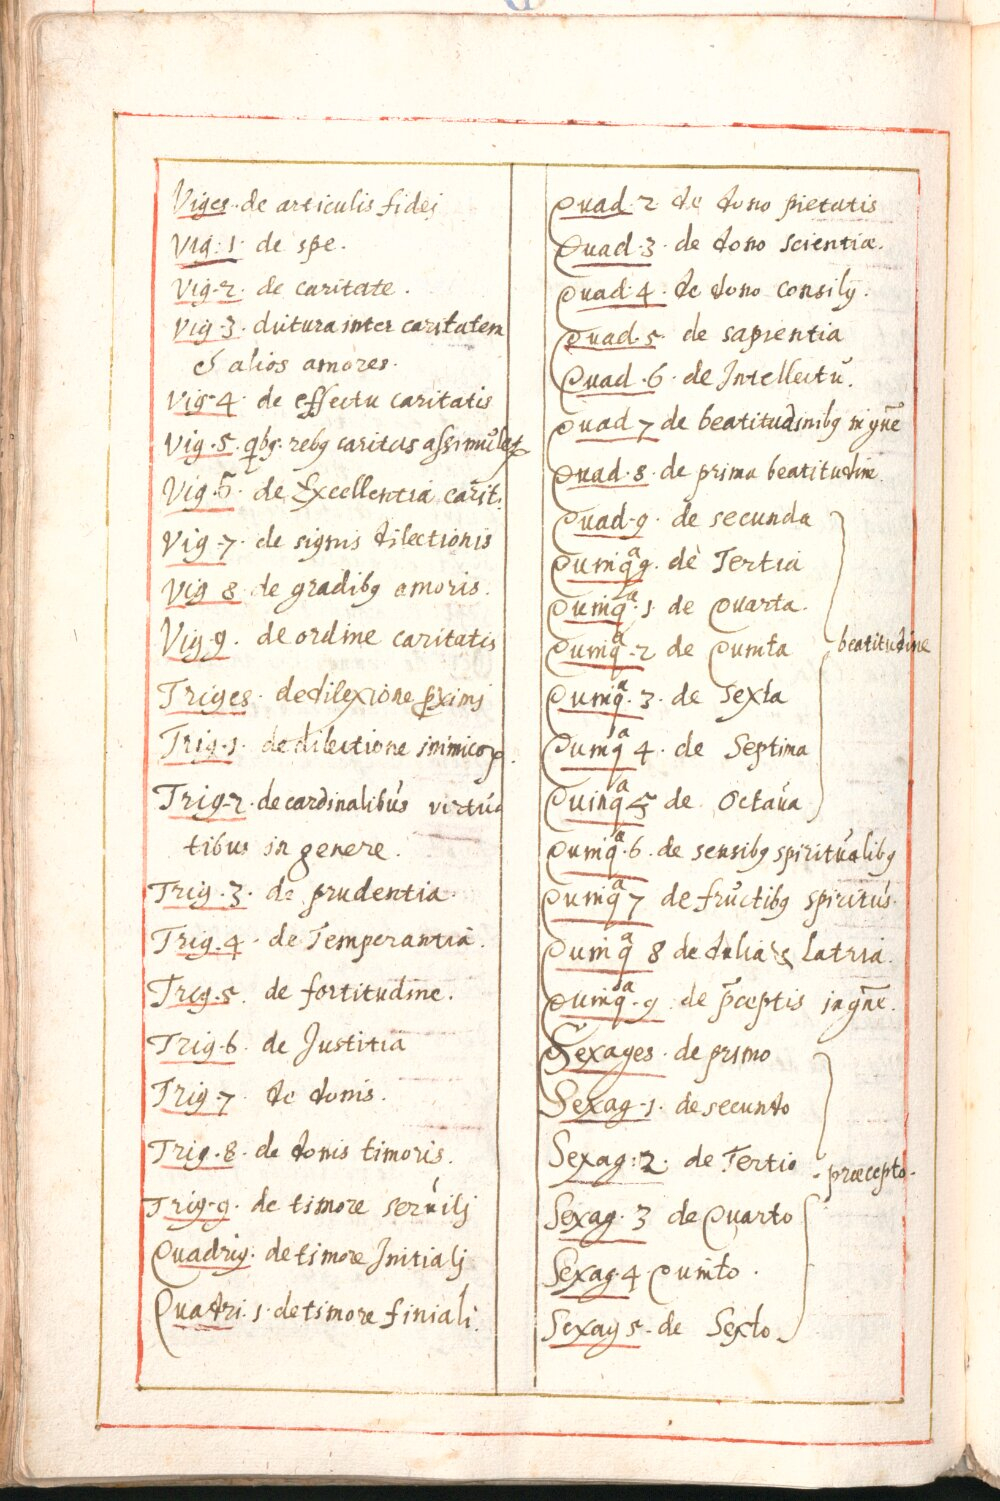 Viges. de articulis fidej
Vig. 1. de spe.
Vig. 2. de caritate.
Vig. 3. dritura inter caritatem
& alios amores.
Vig. 4. de effectu caritatis
Vig. 5. qbg. rebg caritas assimulat
Vig. 6. de Excellentia carit.
Vig. 7. de signis dilectionis
Vig 8. de gradibg amoris.
Vig. 9. de ordine caritatis
Triges. de dilexione pximj
Trig. 1. de dilectione inimicor
Trig. 2. de cardinalibus virtu
tibus in genere.
Trig. 3. de prudentia.
Trig. 4. de Temperantia.
Trig. 5. de fortitudine.
Trig. 6. de Justitia
Trig. 7. de donis.
Trig. 8. de donis timoris.
Trig. 9. de timore servilj
Quadrig. de timore Initialj
Quadri. 1. de timore finiali.
Quad. 2 de dono pietatis
Quad. 3. de dono scientiæ.
Quad. 4. de dono consilij.
Quad. 5. de sapientia
Quad. 6. de Intellectu.
Quad 7 de beatitudinibg in gñe
Quad. 8. de prima beatitudine.
Quad. 9. de secunda
Quinqª 9. de Tertia
Quinqª. 1. de Quarta.
Quinqª. 2 de Quinta
beatitudine
Quinqª. 3. de Sexta
Quinqª 4. de Septima
Quinqª 5 de Octaua
Quinqª. 6. de sensibg spiritualibg
Quinqª 7 de fructibg spiritus.
Quinqª 8 de dulia & Latria.
Quinqª. 9. de p̄ceptis in gñe.
Sexages. de primo
Sexag. 1. de secundo
Sexag. 2. de Tertio
præcepto.
Sexag. 3 de Quarto
Sexag. 4. Quinto.
Sexag 5. de Sexto.